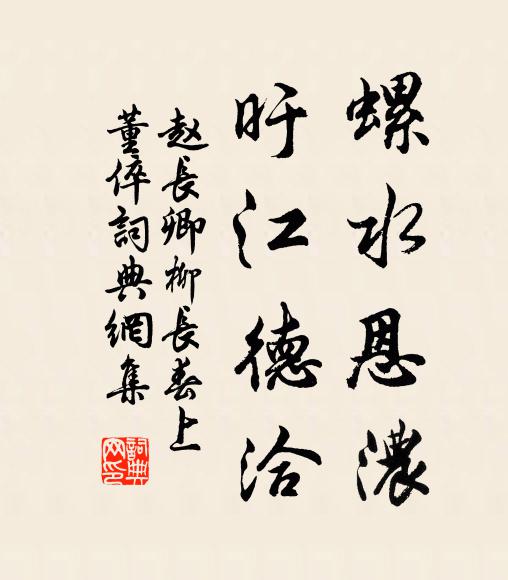 螺水恩濃
旴江德洽
趙長卿柳長春上
董倅詞典網集
詞典網印